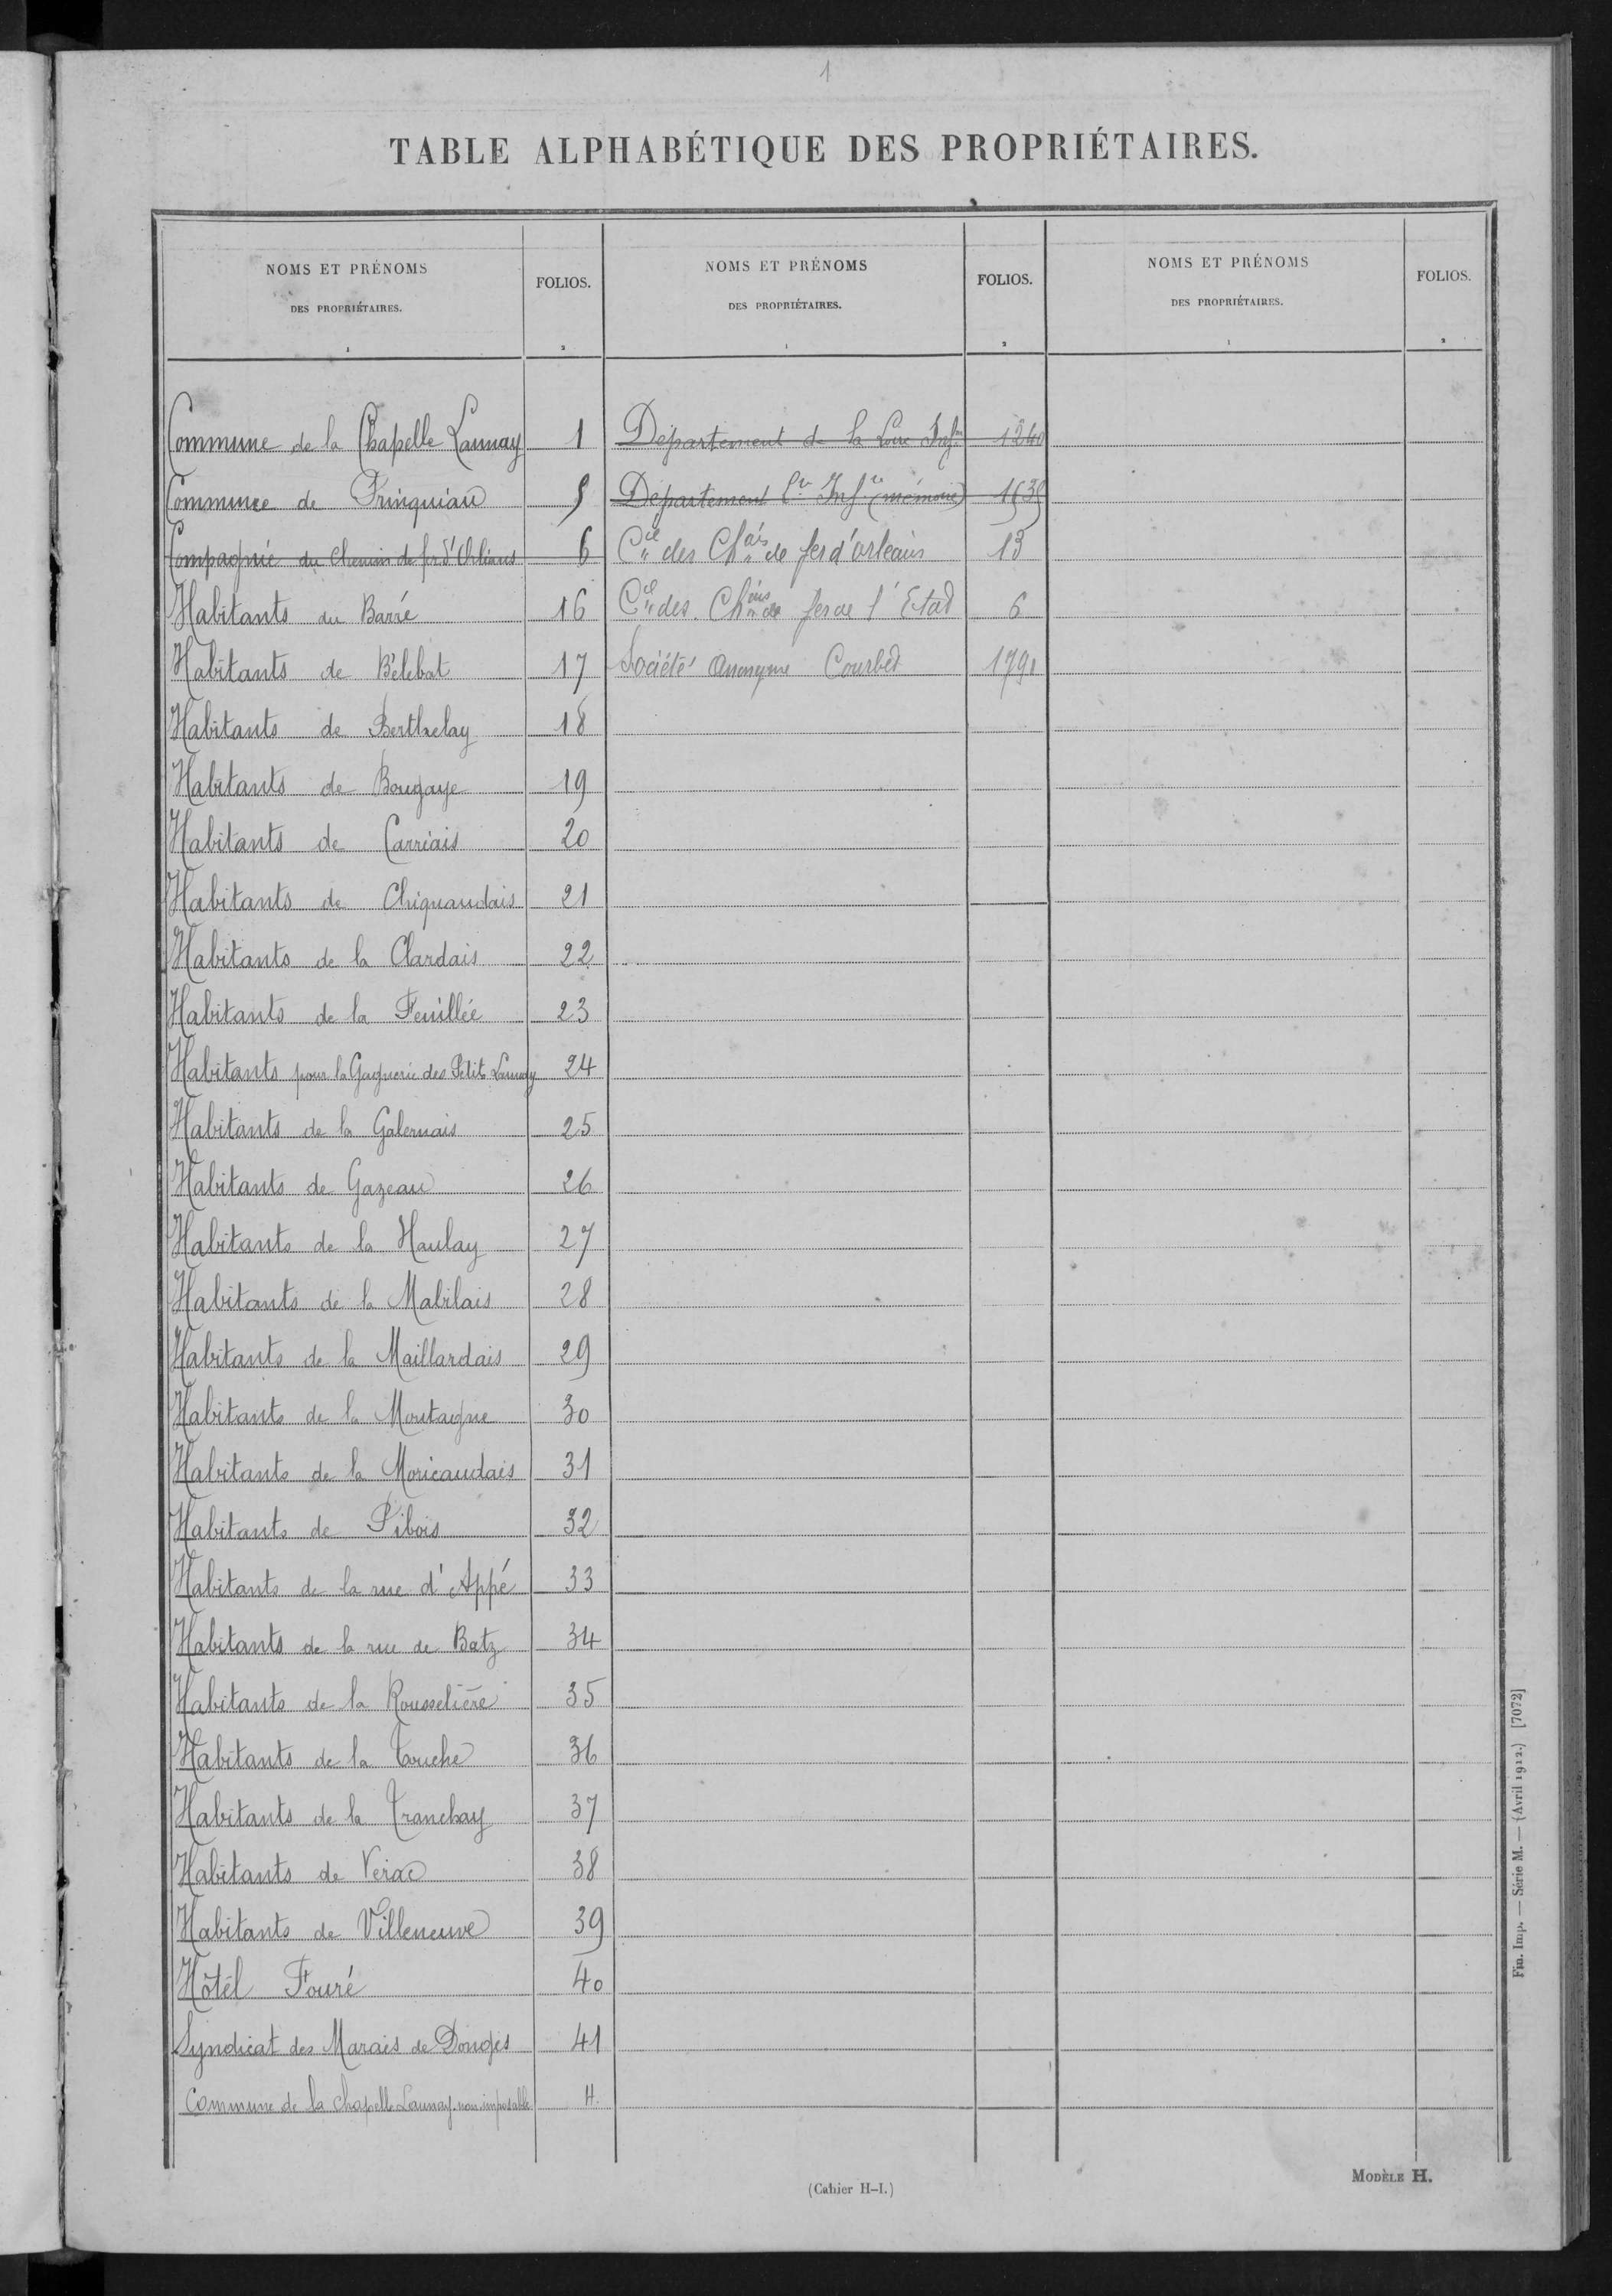 1
TABLE ALPHABÉTIQUE DES PROPRIÉTAIRES.
NOMS ET PRÉNOMS
DES PROPRIÉTAIRES.
1
FOLIOS.
2
NOMS ET PRÉNOMS
DES PROPRIÉTAIRES.
1
FOLIOS.
2
NOMS ET PRÉNOMS
DES PROPRIÉTAIRES.
1
FOLIOS.
2
Commune de la Chapelle Launay 1
Commune de Prinquiau 5
Compagnie du Chemin de fer d'Orléans 6
Habitants du Barré 16
Habitants de Bélebat 17
Habitants de Berthelay 18
Habitants de Bougaye 19
Habitants de Carriais 20
Habitants de Chiquaudais 21
Habitants de la Clardais 22
Habitants de la Feuillée 23
Habitants pour la Gagnerie des Petits Launay 24
Habitants de la Galernais 25
Habitants de Gazeau 26
Habitants de la Haulay 27
Habitants de la Mabilais 28
Habitants de la Maillardais 29
Habitants de la Montagne 30
Habitants de la Moricaudais 31
Habitants de Pibois 32
Habitants de la rue d'Appé 33
Habitants de la rue de Batz 34
Habitants de la Rousselière 35
Habitants de la Touche 36
Habitants de la Tranchay 37
Habitants de Verac 38
Habitants de Villeneuve 39
Hôtel Fouré 40
Syndicat des Marais de Donges 41
Commune de la chapelle Launay non imposable 4
Département de la Loire Infre 1240
Département Lre Infre (mémoire) 1535
Cie des Chins de fer d'orléans 13
Cie des Chins de fer de l'Etat 6
Société Anonyme Courbet 1791
(Cahier H–I.)
MODÈLE H.
Fin. Imp. — Série M. — (Avril 1912.) [7072]